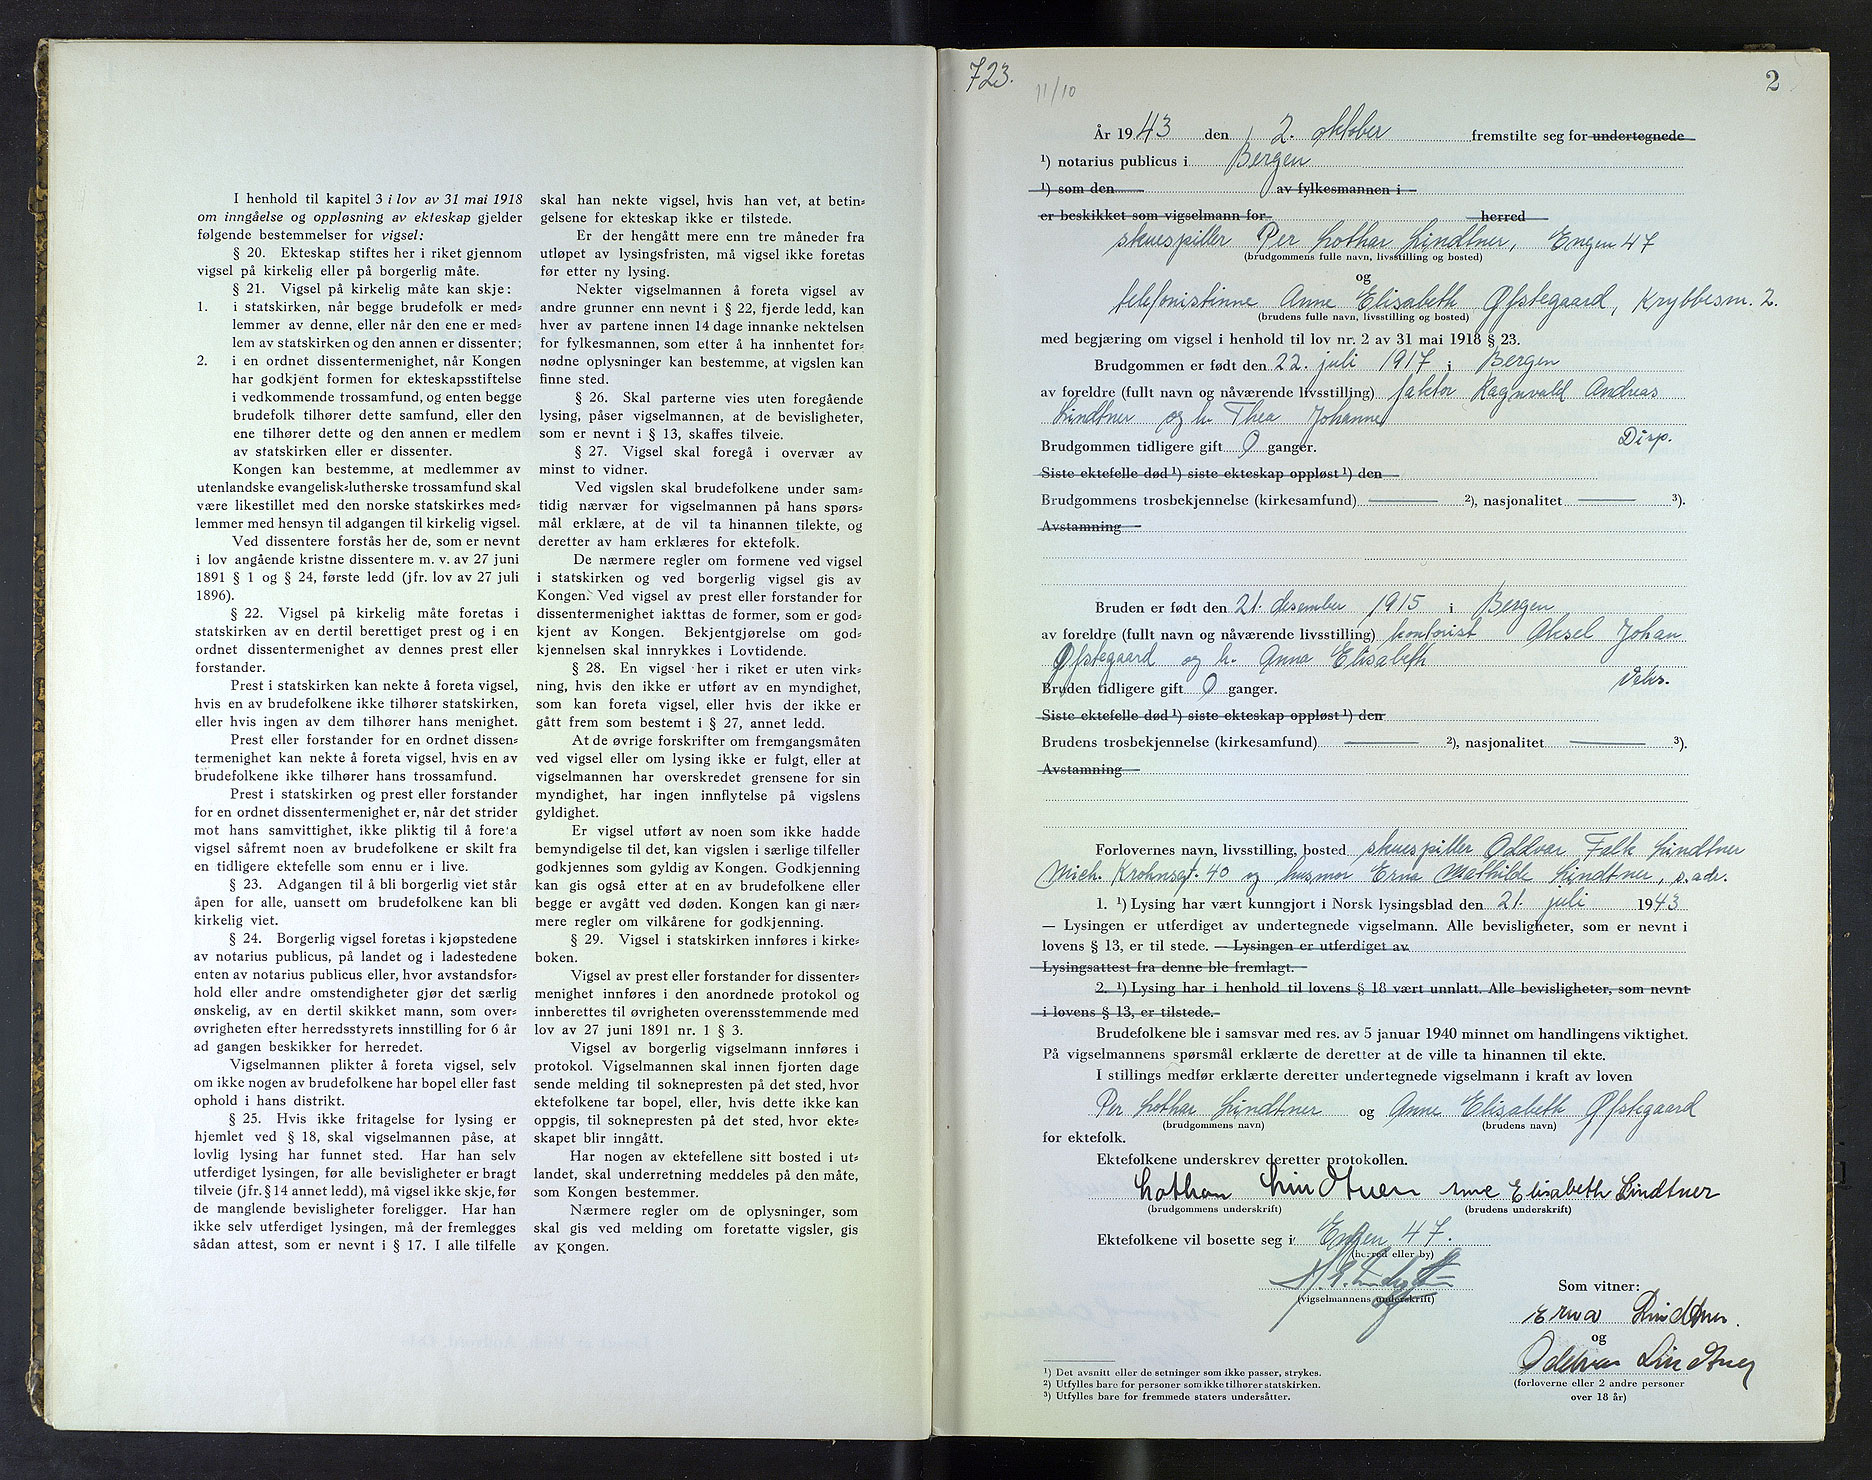 I henhold til kapitel 3 i lov av 31 mai 1918
om inngåelse og oppløsning av ekteskap gjelder
følgende bestemmelser for vigsel:
§ 20. Ekteskap stiftes her i riket gjennom
vigsel på kirkelig eller på borgerlig måte.
§ 21. Vigsel på kirkelig måte kan skje:
1. i statskirken, når begge brudefolk er med-
lemmer av denne, eller når den ene er med-
lem av statskirken og den annen er dissenter;
2. i en ordnet dissentermenighet, når Kongen
har godkjent formen for ekteskapsstiftelse
i vedkommende trossamfund, og enten begge
brudefolk tilhører dette samfund, eller den
ene tilhører dette og den annen er medlem
av statskirken eller er dissenter.
Kongen kan bestemme, at medlemmer av
utenlandske evangelisk-lutherske trossamfund skal
være likestillet med den norske statskirkes med-
lemmer med hensyn til adgangen til kirkelig vigsel.
Ved dissentere forstås her de, som er nevnt
i lov angående kristne dissentere m. v. av 27 juni
1891 § 1 og § 24, første ledd (jfr. lov av 27 juli
1896).
§ 22. Vigsel på kirkelig måte foretas i
statskirken av en dertil berettiget prest og i en
ordnet dissentermenighet av dennes prest eller
forstander.
Prest i statskirken kan nekte å foreta vigsel,
hvis en av brudefolkene ikke tilhører statskirken,
eller hvis ingen av dem tilhører hans menighet.
Prest eller forstander for en ordnet dissen-
termenighet kan nekte å foreta vigsel, hvis en av
brudefolkene ikke tilhører hans trossamfund.
Prest i statskirken og prest eller forstander
for en ordnet dissentermenighet er, når det strider
mot hans samvittighet, ikke pliktig til å fore'a
vigsel såfremt noen av brudefolkene er skilt fra
en tidligere ektefelle som ennu er i live.
§ 23. Adgangen til å bli borgerlig viet står
åpen for alle, uansett om brudefolkene kan bli
kirkelig viet.
§ 24. Borgerlig vigsel foretas i kjøpstedene
av notarius publicus, på landet og i ladestedene
enten av notarius publicus eller, hvor avstandsfor-
hold eller andre omstendigheter gjør det særlig
ønskelig, av en dertil skikket mann, som over-
øvrigheten efter herredsstyrets innstilling for 6 år
ad gangen beskikker for herredet.
Vigselmannen plikter å foreta vigsel, selv
om ikke nogen av brudefolkene har bopel eller fast
ophold i hans distrikt.
§ 25. Hvis ikke fritagelse for lysing er
hjemlet ved § 18, skal vigselmannen påse, at
lovlig lysing har funnet sted. Har han selv
utferdiget lysingen, før alle bevisligheter er bragt
tilveie (jfr. § 14 annet ledd), må vigsel ikke skje, før
de manglende bevisligheter foreligger. Har han
ikke selv utferdiget lysingen, må der fremlegges
sådan attest, som er nevnt i § 17. I alle tilfelle
skal han nekte vigsel, hvis han vet, at betin-
gelsene for ekteskap ikke er tilstede.
Er der hengått mere enn tre måneder fra
utløpet av lysingsfristen, må vigsel ikke foretas
før etter ny lysing.
Nekter vigselmannen å foreta vigsel av
andre grunner enn nevnt i § 22, fjerde ledd, kan
hver av partene innen 14 dage innanke nektelsen
for fylkesmannen, som etter å ha innhentet for-
nødne oplysninger kan bestemme, at vigslen kan
finne sted.
§ 26. Skal parterne vies uten foregående
lysing, påser vigselmannen, at de bevisligheter,
som er nevnt i § 13, skaffes tilveie.
§ 27. Vigsel skal foregå i overvær av
minst to vidner.
Ved vigslen skal brudefolkene under sam-
tidig nærvær for vigselmannen på hans spørs-
mål erklære, at de vil ta hinannen tilekte, og
deretter av ham erklæres for ektefolk.
De nærmere regler om formene ved vigsel
i statskirken og ved borgerlig vigsel gis av
Kongen. Ved vigsel av prest eller forstander for
dissentermenighet iakttas de former, som er god-
kjent av Kongen. Bekjentgjørelse om god-
kjennelsen skal innrykkes i Lovtidende.
§ 28. En vigsel her i riket er uten virk-
ning, hvis den ikke er utført av en myndighet,
som kan foreta vigsel, eller hvis der ikke er
gått frem som bestemt i § 27, annet ledd.
At de øvrige forskrifter om fremgangsmåten
ved vigsel eller om lysing ikke er fulgt, eller at
vigselmannen har overskredet grensene for sin
myndighet, har ingen innflytelse på vigslens
gyldighet.
Er vigsel utført av noen som ikke hadde
bemyndigelse til det, kan vigslen i særlige tilfeller
godkjennes som gyldig av Kongen. Godkjenning
kan gis også etter at en av brudefolkene eller
begge er avgått ved døden. Kongen kan gi nær-
mere regler om vilkårene for godkjenning.
§ 29. Vigsel i statskirken innføres i kirke-
boken.
Vigsel av prest eller forstander for dissenter-
menighet innføres i den anordnede protokol og
innberettes til øvrigheten overensstemmende med
lov av 27 juni 1891 nr. 1 § 3.
Vigsel av borgerlig vigselmann innføres i
protokol. Vigselmannen skal innen fjorten dage
sende melding til soknepresten på det sted, hvor
ektefolkene tar bopel, eller, hvis dette ikke kan
oppgis, til soknepresten på det sted, hvor ekte-
skapet blir inngått.
Har nogen av ektefellene sitt bosted i ut-
landet, skal underretning meddeles på den måte,
som Kongen bestemmer.
Nærmere regler om de oplysninger, som
skal gis ved melding om foretatte vigsler, gis
av Kongen.
723. 11/10 2
År 1943 den 2. oktober fremstilte seg for undertegnede
¹) notarius publicus i Bergen
¹) som den av fylkesmannen i
er beskikket som vigselmann for herred
skuespiller Per Lothar Lindtner, Engen 47
(brudgommens fulle navn, livsstilling og bosted)
og
telefonistinne Anne Elisabeth Øfstegaard, Krybbesm. 2.
(brudens fulle navn, livsstilling og bosted)
med begjæring om vigsel i henhold til lov nr. 2 av 31 mai 1918 § 23.
Brudgommen er født den 22. juli 1917 i Bergen
av foreldre (fullt navn og nåværende livsstilling) faktor Ragnvald Andreas
Lindtner og h. Thea Johanne
Brudgommen tidligere gift 0 ganger. Disp.
Siste ektefelle død ¹) siste ekteskap oppløst ¹) den
Brudgommens trosbekjennelse (kirkesamfund) ²), nasjonalitet ³).
Avstamning
Bruden er født den 21. desember 1915 i Bergen
av foreldre (fullt navn og nåværende livsstilling) kontorist Aksel Johan
Øfstegaard og h. Anna Elisabeth
Bruden tidligere gift 0 ganger.
Siste ektefelle død ¹) siste ekteskap oppløst ¹) den
Brudens trosbekjennelse (kirkesamfund) ²), nasjonalitet ³).
Avstamning
Forlovernes navn, livsstilling, bosted skuespiller Oddvar Falk Lindtner
Mich. Krohnsgt. 40 og husmor Erna Mathilde Lindtner, s. adr.
1. ¹) Lysing har vært kunngjort i Norsk lysingsblad den 21. juli 1943
— Lysingen er utferdiget av undertegnede vigselmann. Alle bevisligheter, som er nevnt i
lovens § 13, er til stede. — Lysingen er utferdiget av
Lysingsattest fra denne ble fremlagt. —
2. ¹) Lysing har i henhold til lovens § 18 vært unnlatt. Alle bevisligheter, som nevnt
i lovens § 13, er tilstede.
Brudefolkene ble i samsvar med res. av 5 januar 1940 minnet om handlingens viktighet.
På vigselmannens spørsmål erklærte de deretter at de ville ta hinannen til ekte.
I stillings medfør erklærte deretter undertegnede vigselmann i kraft av loven
Per Lothar Lindtner og Anne Elisabeth Øfstegaard
(brudgommens navn) (brudens navn)
for ektefolk.
Ektefolkene underskrev deretter protokollen.
Lothar Lindtner Anne Elisabeth Lindtner
(brudgommens underskrift) (brudens underskrift)
Ektefolkene vil bosette seg i Engen 47.
(herred eller by)
(vigselmannens underskrift)
Som vitner:
Erna Lindtner.
og
Oddvar Lindtner
(forloverne eller 2 andre personer
over 18 år)
¹) Det avsnitt eller de setninger som ikke passer, strykes.
²) Utfylles bare for personer som ikke tilhører statskirken.
³) Utfylles bare for fremmede staters undersåtter.